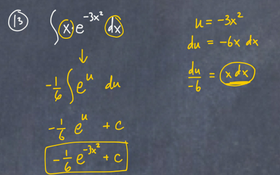 13 ∫ x · e^{-3x²} dx
↓
-1/6 ∫ e^u du
-1/6 e^u + c
-1/6 e^{-3x²} + c
u = -3x²
du = -6x dx
du/-6 = x dx